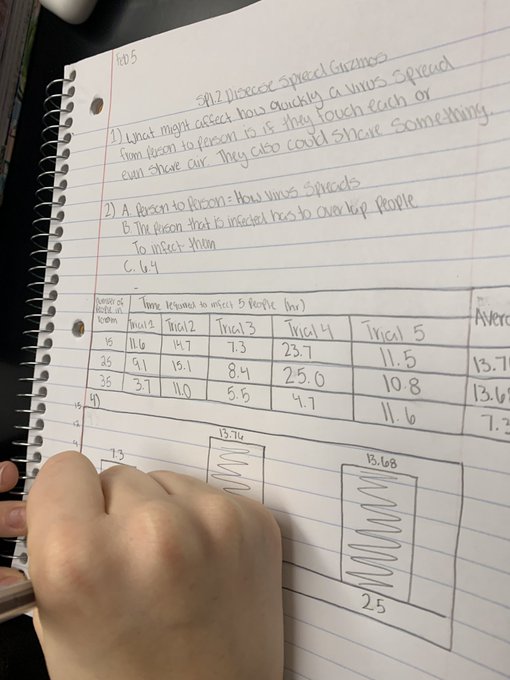 Feb 5
SPI.2 Disease Spread Gizmos
1) What might affect how quickly a virus spread
from person to person is if they touch each or
even share air. They also could share something.
2) A. Person to Person = How virus spreads
B. The person that is infected has to overlap people
To infect them
C. 6.4
Number of People in Room Time required to infect 5 People (hr)
Trial 1 Trial 2 Trial 3 Trial 4 Trial 5
15 11.6 14.7 7.3 23.7 11.5 13.7
25 9.1 15.1 8.4 25.0 10.8 13.6
35 3.7 11.0 5.5 4.7 11.6 7.3
4)
15
7.3 13.76 13.68
25